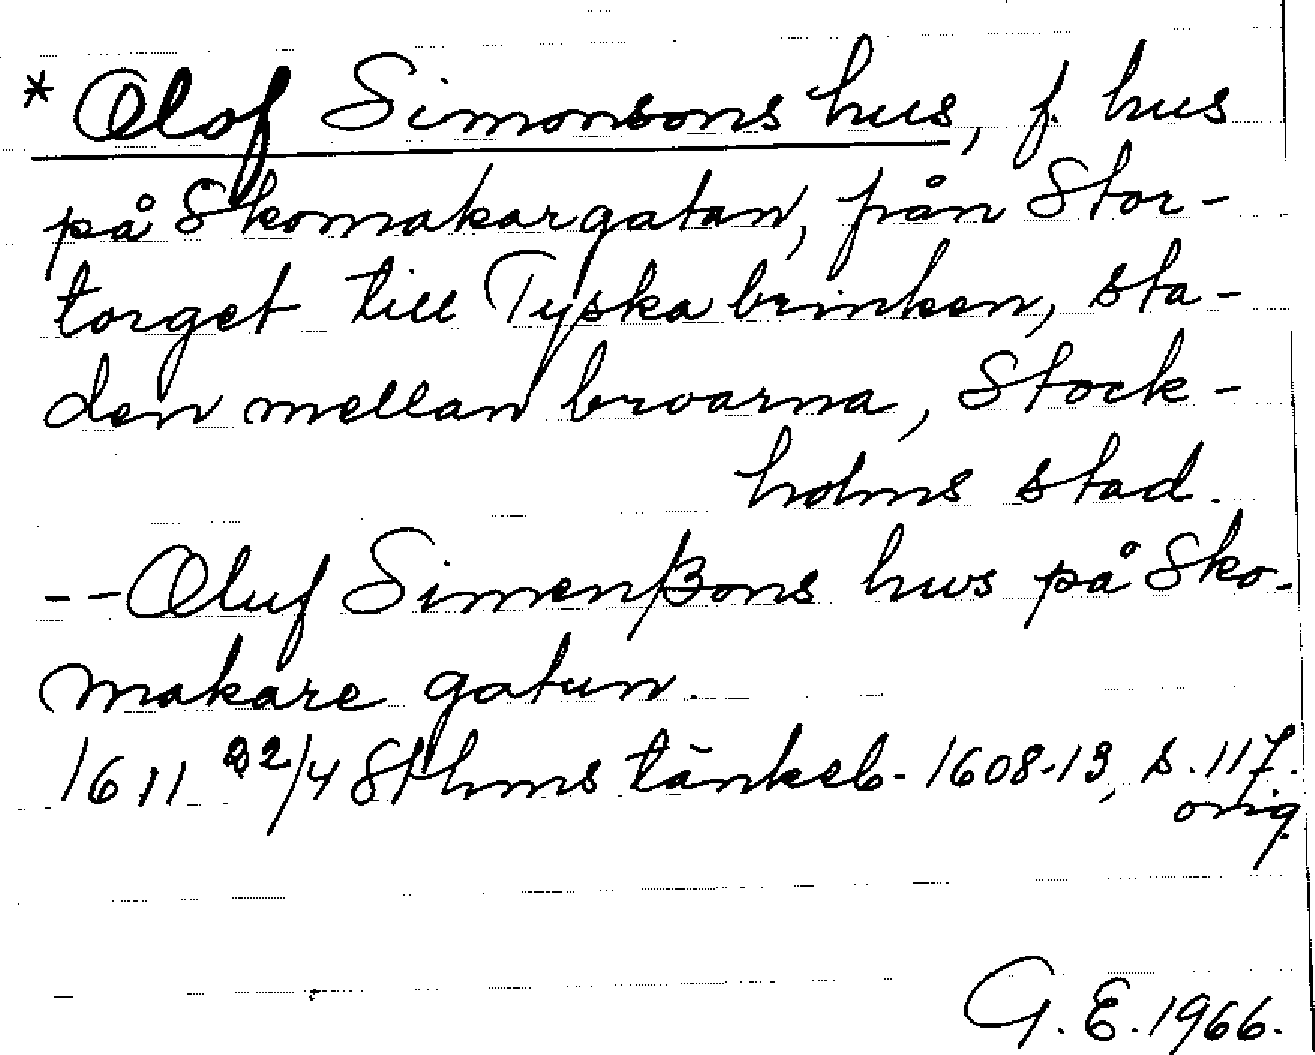 * Olof Simonsons hus, f. hus
på Skomakargatan, från Stor-
torget till Tyska brinken, sta-
den mellan broarna, Stock-
holms stad.
-- Oluf Simenßons hws på Sko-
makare gatun.
1611 22/4 Sthms tänkeb. 1608-13, s. 117.
orig.
G. E. 1966.